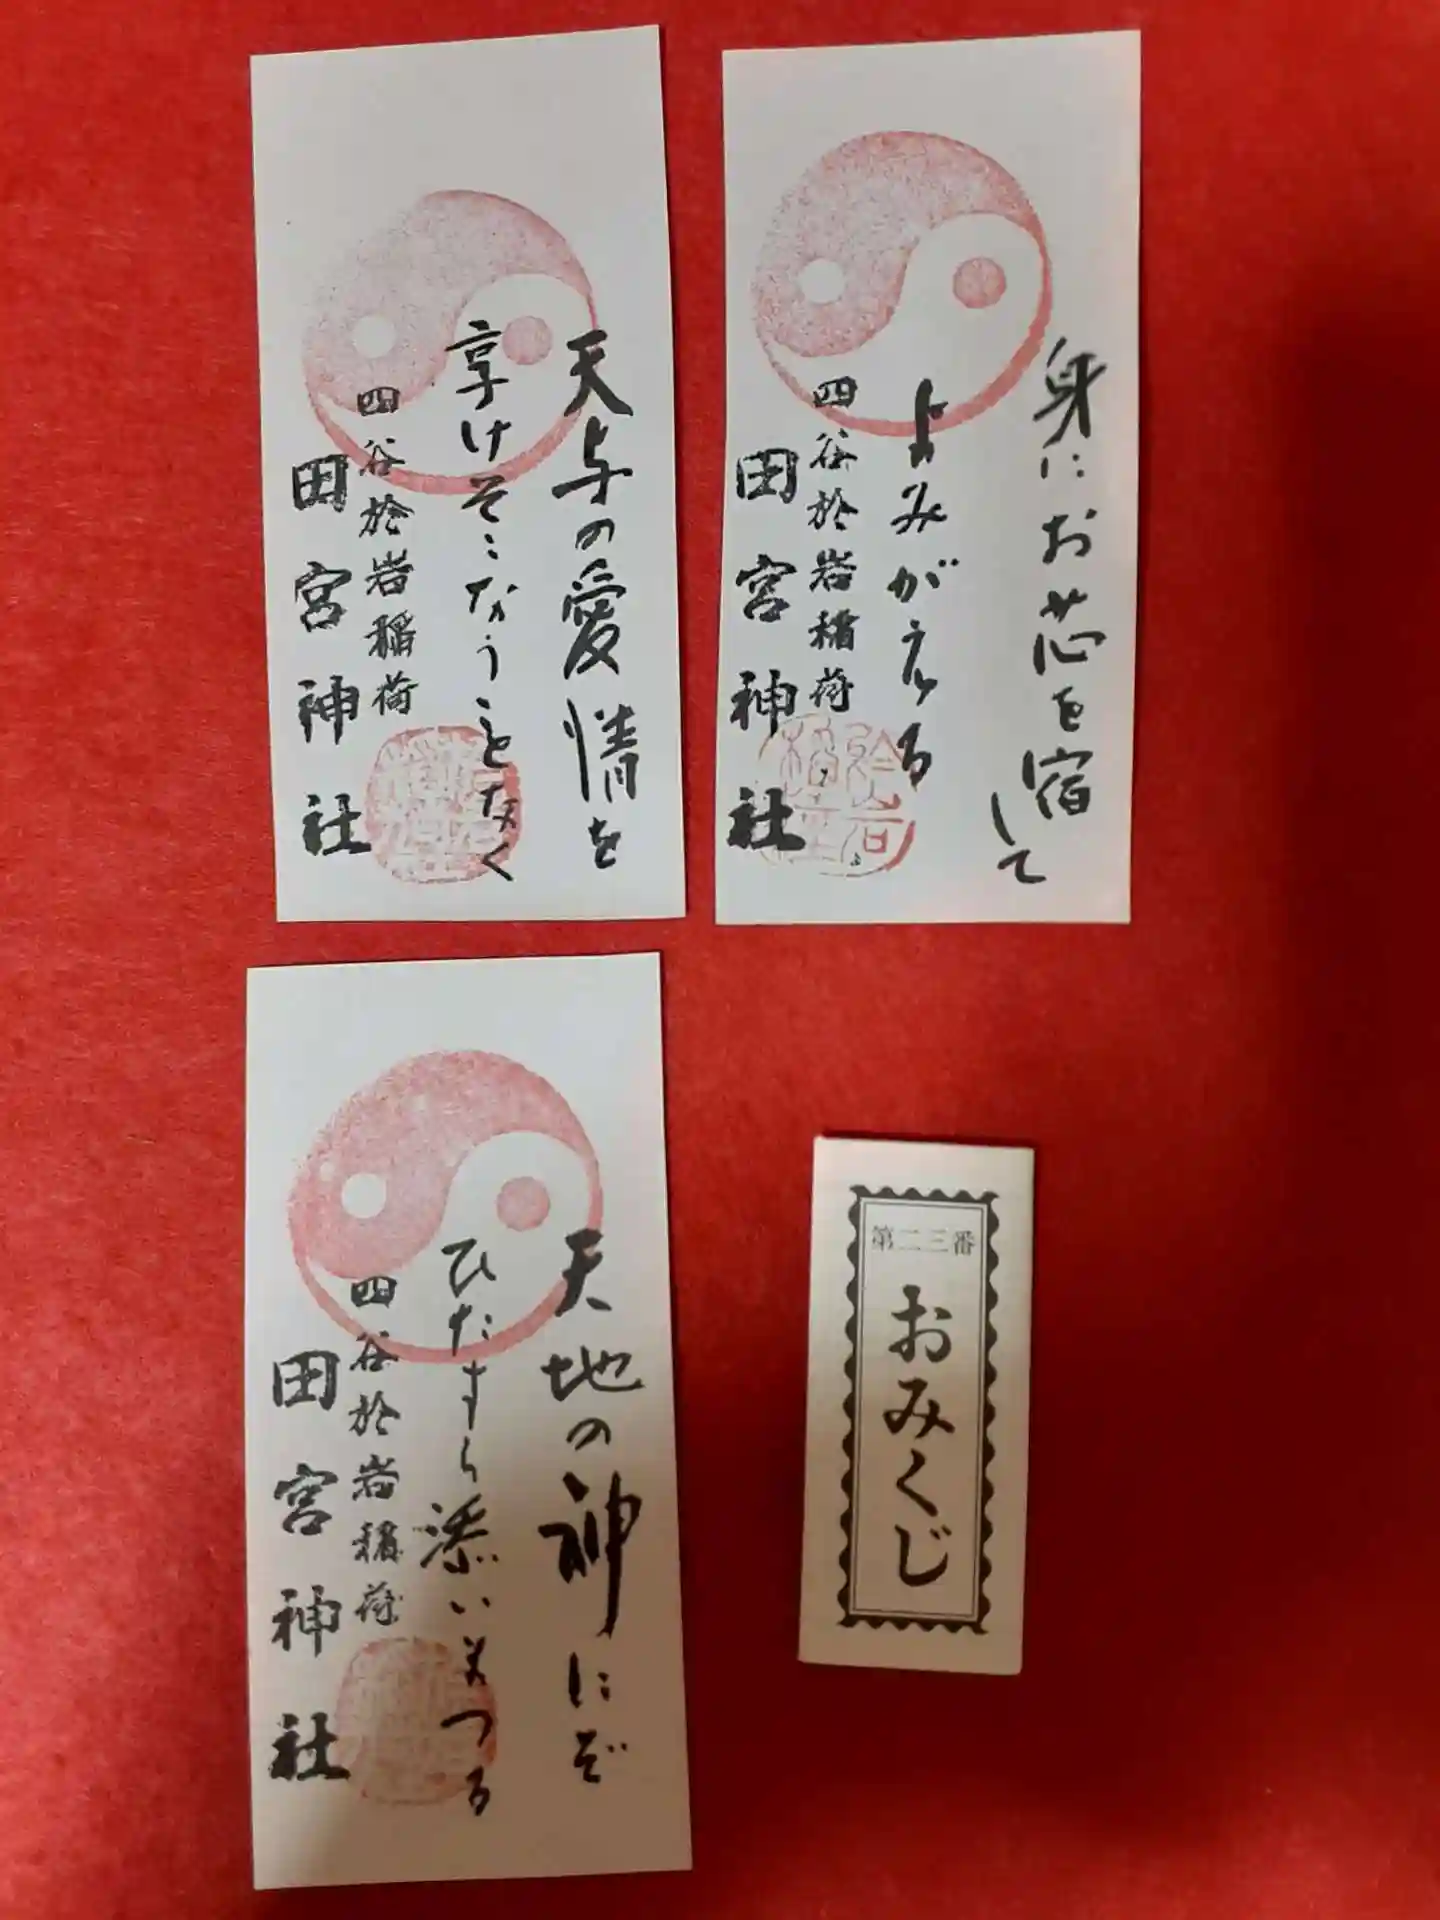 天与の愛情を
享けそこなうことなく
四谷於岩稲荷
田宮神社
身にお芯を宿して
よみがえる
四谷於岩稲荷
田宮神社
天地の神にぞ
ひたすら添いまつる
四谷於岩稲荷
田宮神社
第二三番
おみくじ